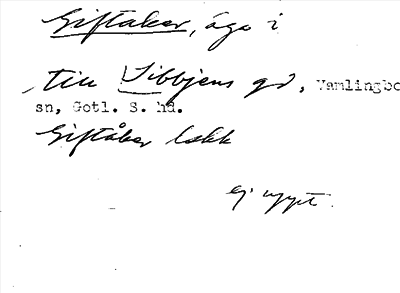 Giftaker, äga i
till Sibbjens gd, Vamlingbo
sn, Gotl. S. hd.
Giftåker lokk
ej uppt.